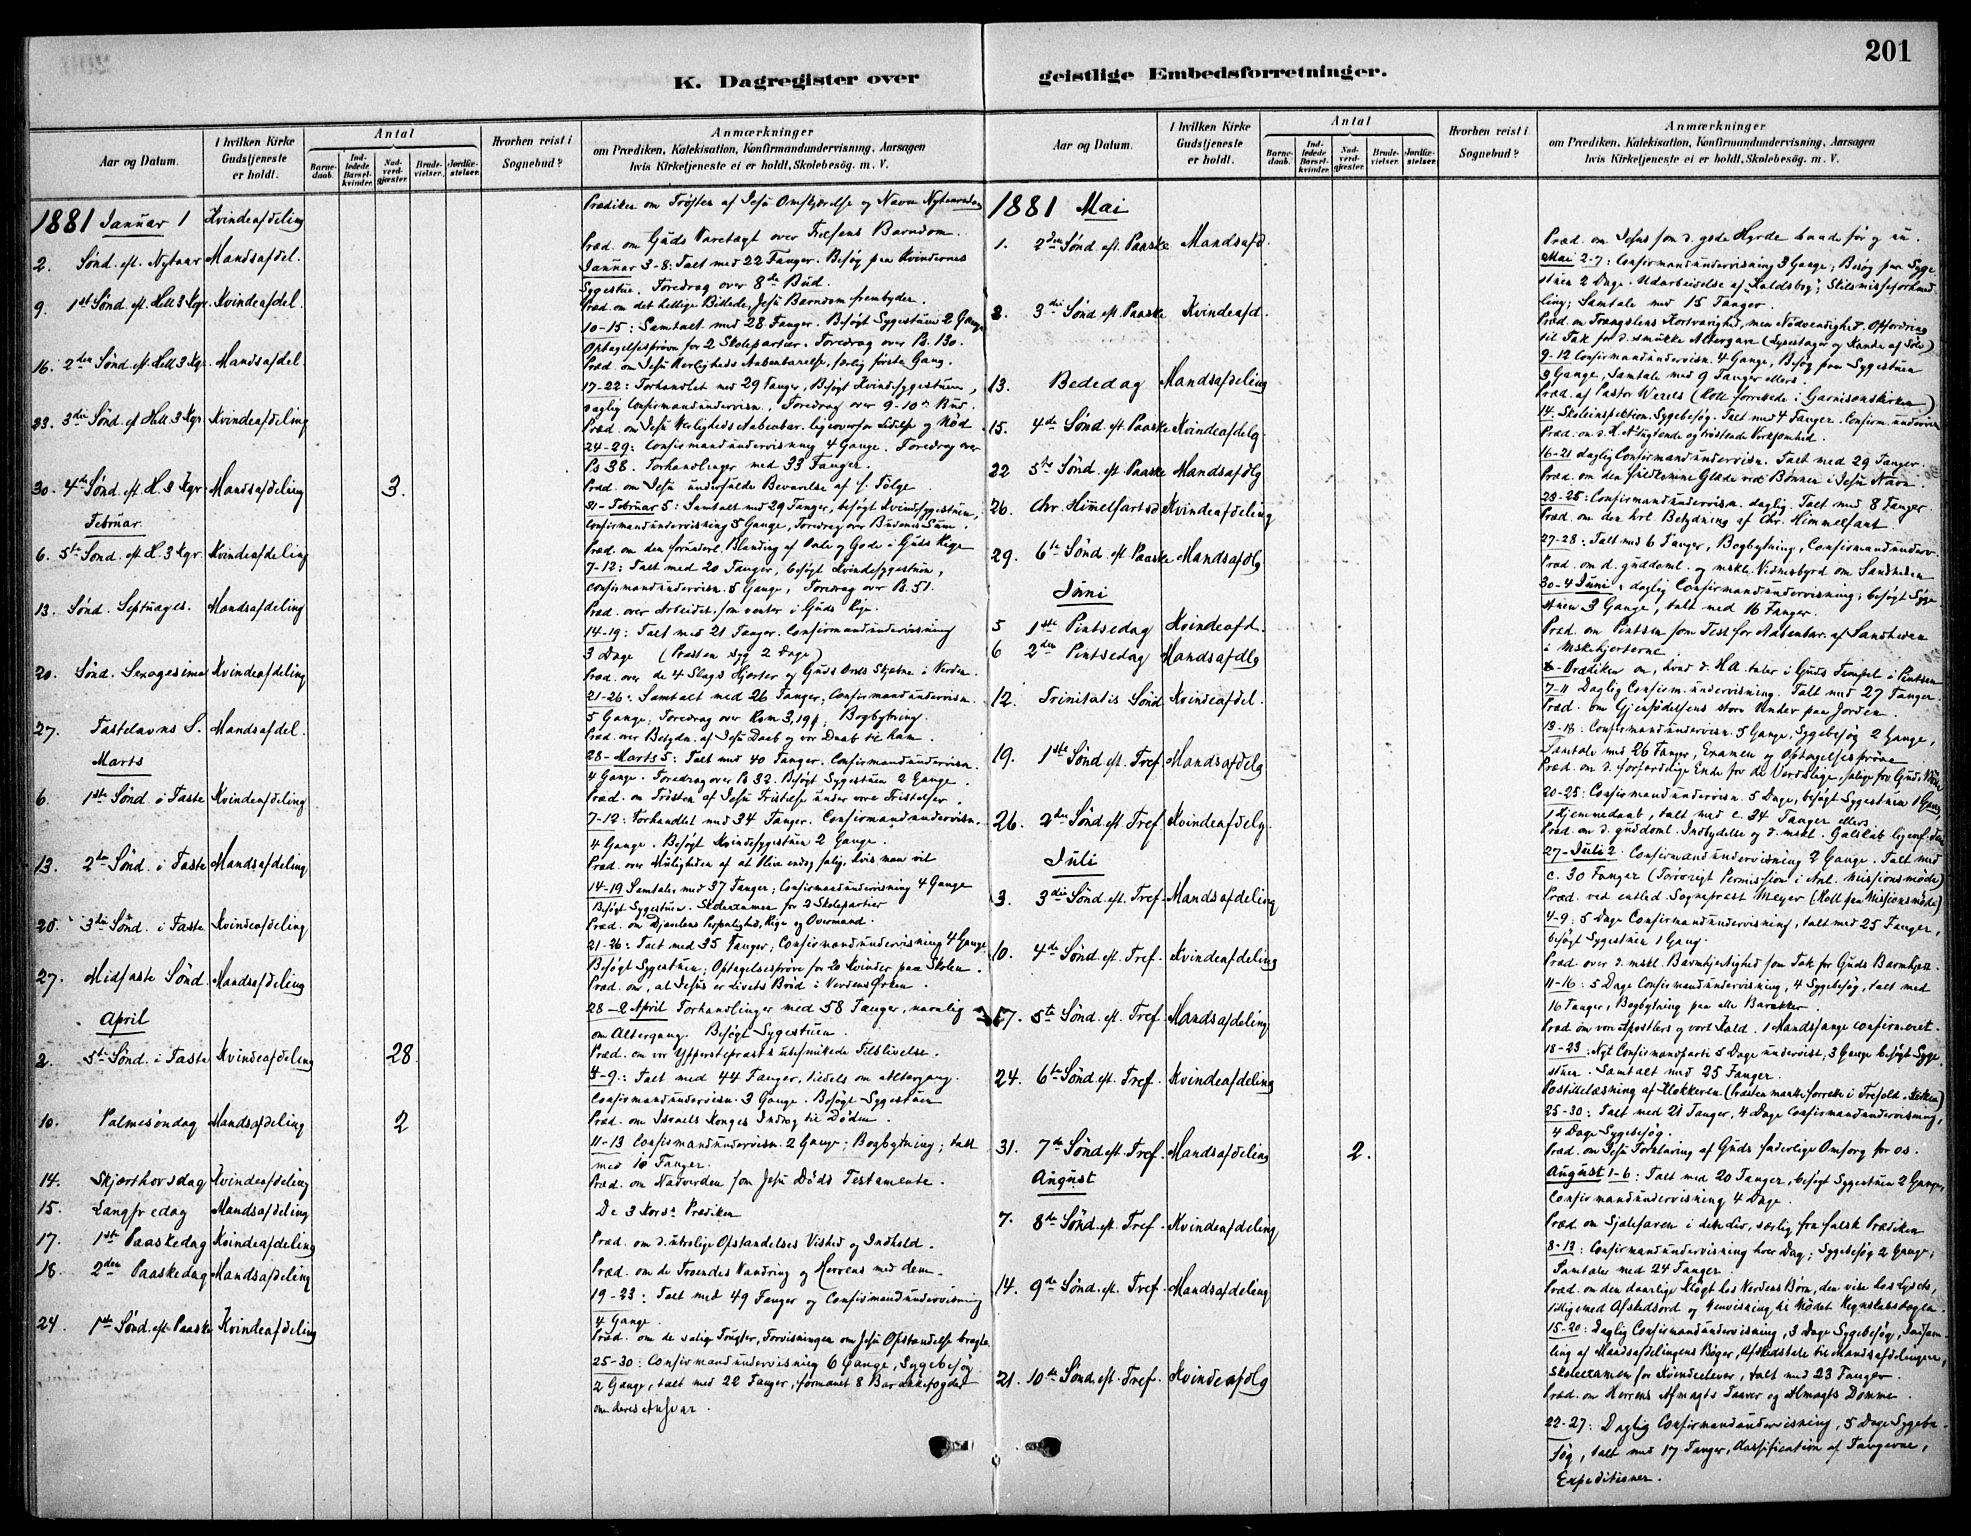 201
K. Dagregister over
geistlige Embedsforretninger.
Aar og Datum.
I hvilken Kirke Gudstjeneste er holdt.
Antal
Barnedaab.
Indledede Barselkvinder.
Nadverdgjæster.
Brudevielser.
Jordfæstelser.
Hvorhen reist i Sognebud?
Anmærkninger
om Prædiken, Katekisation, Konfirmandundervisning, Aarsagen
hvis Kirketjeneste ei er holdt, Skolebesøg. m. V.
1881 Januar 1 Kvindeafdeling Prædiken om Trøsten af Jesu Omskjærelse og Navn
2. Sønd. eft. Nytaar Mandsafdel. Præd. om Guds Varetægt over Barndom.
Januar 3-8: Talt med 22 Fanger. Besøg paa Kvindernes
Sygestue. Foredrag over 8de Bud.
9. 1st Sønd. eft. Hell 3 Kgr. Kvindeafdel. Præd. om det hellige Billede, Jesu Barndom frembyder.
10-15: Samtalt med 28 Fanger. Besøgt Sygestuen 2 Gange
Optagelsesprøve for 2 Skolepartier. Foredrag over Ps. 130.
16. 2den Sønd. eft. Hell 3 Kgr. Mandsafdel. Præd. om Jesu Herligheds Aabenbarelse, særlig første Gang.
17-22: Forhandlet med 29 Fanger, Besøgt Kvindesygestuen,
daglig Confirmandundervisn. Foredrag over 9-10de Bud.
23. 3die Sønd. ef Hell 3 Kgr. Kvindeafdeling Præd. om Jesu Herligheds Aabenbar. ligeoverfor Lidelse og Nød
24-29: Confirmandundervisning 4 Gange. Foredrag over
Ps 38. Forhandlinger med 33 Fanger.
30. 4de Sønd. eft. H. 3 Kgr. Mandsafdeling 3. Præd. om Jesu underfulde Bevarelse af s. Følge
31-Februar 5: Samtalt med 29 Fanger, besøgt Kvindesygestuen,
Confirmandundervisning 5 Gange, Foredrag over Budenes Sum.
Februar.
6. 5te Sønd. eft. H. 3 Kgr. Kvindeafdeling Præd. om den forunderl. Blanding af Onde og Gode i Guds Rige
7-12: Talt med 20 Fanger, besøgt Kvindesygestuen,
Confirmandundervisn. 5 Gange, Foredrag over Ps. 51.
13. Sønd. Septuages. Mandsafdeling Præd. over Arbeidet, som venter i Guds Rige.
14-19: Talt med 21 Fanger. Confirmandundervisning
3 Dage (Præsten syg 2 Dage)
20. Sønd. Sexagesima Kvindeafdeling Præd. over de 4 Slags Hjerter og Guds Ords Skjæbne i Verden.
21-26: Samtalt med 26 Fanger; Confirmandundervisn.
5 Gange; Foredrag over Rom 3,19f; Bogbytning.
27. Fastelavns S. Mandsafdel. Præd. over Betydn. af Jesu Daab og vor Daab til ham.
28-Marts 5: Talt med 40 Fanger. Confirmandundervisn.
4 Gange. Foredrag over Ps 32. Besøgt Sygestuen 2 Gange.
Marts
6. 1ste Sønd. i Faste Kvindeafdeling Præd. om Trøsten af Jesu Fristelse under vore Fristelser.
7-12: Forhandlet med 34 Fanger. Confirmandundervisn.
4 Gange. Besøgt Kvindesygestuen 2 Gange.
13. 2den Sønd. i Faste Mandsafdeling Præd. over Muligheden af at blive endog salig, hvis man vil
14-19 Samtaler med 37 Fanger; Confirmandundervisning 4 Gange
Besøgt Sygestuen. Skoleexamen for 2 Skolepartier
20. 3die Sønd. i Faste Kvindeafdeling Præd. om Djævelens Personlighed, Rige og Overmand.
21-26: Talt med 35 Fanger; Confirmandundervisning 4 Gange
Besøgt Sygestuen; Optagelsesprøve for 20 Kvinder paa Skolen.
27. Midfaste Sønd. Mandsafdeling Præd. om, at Jesus er Livets Brød i Verdens Ørken.
28-2 April Forhandlinger med 58 Fanger, navnlig
om Altergang. Besøgt Sygestuen.
April
2. 5te Sønd. i Faste Kvindeafdeling 28. Præd. om vor Ypperstepræsts ubesmittede Tilblivelse.
4-9: Talt med 44 Fanger, tildels om Altergang.
Confirmandundervisn. 3 Gange. Besøgt Sygestuen
10. Palmesøndag Mandsafdeling 2 Præd. om Israels Konges Indtog til Døden.
11-13 Confirmandundervisn. 2 Gange; Bogbytning; talt
med 10 Fanger.
14. Skjærthorsdag Kvindeafdeling Præd. om Nadverden som Jesu Døds Testamente.
15. Langfredag Mandsafdeling De 3 Kors's Prædiken
17. 1ste Paaskedag Kvindeafdeling Præd. om d. utrolige Opstandelses Vished og Indhold.
18. 2den Paaskedag Mandsafdeling Præd. om de Troendes Vandring og Herrens med dem.
19-23: Talt med 49 Fanger og Confirmandundervisning
4 Gange.
24. 1ste Sønd. eft. Paaske Kvindeafdeling Præd. om de salige Frugter, Forvisningen om Jesu Opstandelse bragte.
25-30: Confirmandundervisning 6 Gange, Sygebesøg
2 Gange, talt med 22 Fanger, formanet 8 Barakkefogder
om deres Ansvar.
Aar og Datum.
I hvilken Kirke Gudstjeneste er holdt.
Antal
Barnedaab.
Indledede Barselkvinder.
Nadverdgjæster.
Brudevielser.
Jordfæstelser.
Hvorhen reist i Sognebud?
Anmærkninger
om Prædiken, Katekisation, Konfirmandundervisning, Aarsagen
hvis Kirketjeneste ei er holdt, Skolebesøg. m. V.
1881 Mai
1. 2den Sønd. eft. Paaske Mandsafd. Præd. om Jesus som d. gode Hyrde baade før og nu.
Mai 2-7: Confirmandundervisning 3 Gange; Besøg paa Sygestuen 2 Dage. Udarbeidelse af Kaldsbog; Skilsmisseforhandling; Samtale med 15 Fanger.
8. 3die Sønd. eft. Paaske Kvindeafd. Præd. om Trængslens Kortvarighed, men Nødvendighed. Opfordring
til Tak for d. smukke Altergave (Lysestager og Kande af Sølv)
9-12 Confirmandundervisn. 4 Gange, Besøg paa Sygestuen
3 Gange, Samtale med 9 Fanger ellers.
13. Bededag Mandsafdeling Præd. af Pastor Wexels (Koll forrettede i Garnisonskirken)
14. Skoleinspektion. Sygebesøg. Talt med 4 Fanger. Confirm.undervisn
15. 4de Sønd. eft. Paaske Kvindeafdelg. Præd. om d. H. A. tugtende og trøstende Virksomhed.
16-21 daglig Confirmandundervisn. Talt med 29 Fanger.
22 5te Sønd. eft. Paaske Mandsafdlg Præd. om den fuldkomne Glæde ved Bønnen i Jesu Navn.
23-25: Confirmandundervisn. daglig. Talt med 8 Fanger.
26. Chr. Himmelfartsd Kvindeafdeling Præd. om den hrl. Betydning af Chr. Himmelfart.
27-28: Talt med 6 Fanger, Bogbytning, Confirmandunderv.
29. 6te Sønd. eft. Paaske Mandsafdlg Præd. om d. guddoml. og mskl. Vidnesbyrd om Sandheden
30-4 Juni: daglig Confirmandundervisning; besøgt Sygestuen 3 Gange, talt med 16 Fanger.
Juni
5 1ste Pintsedag Kvindeafd. Præd. om Pintsen som Fest for Aabenbar. af Sandheden
i Mskehjerterne.
6 2den Pintsedag Mandsafdlg Prædiken om, hvad d. HA. taler i Guds Tempel i Pintsen
7-11 Daglig Confirm.undervisning. Talt med 27 Fanger.
12. Trinitatis Sønd. Kvindeafdel. Præd. om Gjenfødelsens store Under paa Jorden.
13-18. Confirmandundervisn. 5 Gange, Sygebesøg 2 Gange,
Samtale med 26 Fanger, Examen og Optagelsesprøve
19. 1ste Sønd. eft. Tref. Mandsafdelg Præd. om d. forfærdelige Ende for de Verdslige, salige for Guds Venner
20-25: Confirmandundervisn. 5 Dage, besøgt Sygestuen 1 Gang,
1 Hjemmedaab, talt med c. 34 Fanger ellers.
26. 2den Sønd. eft. Tref. Kvindeafdelg. Præd. om d. guddoml. Indbydelse og d. mskl. Galskab ligeoverf. den
27-Juli 2. Confirmandundervisning 2 Gange. Talt med
c. 30 Fanger (Forøvrigt Permission i Anl. Missionsmøde)
Juli
3. 3die Sønd. eft. Tref. Mandsafdeling Præd. ved entled. Sogneprest Meyer (Koll paa Missionsmøde)
4-9: 5 Dage Confirmandundervisning, talt med 25 Fanger,
besøgt Sygestuen 1 Gang.
10. 4de Sønd. eft. Tref. Kvindeafdeling Præd. over d. mskl. Barmhjertighed som Tak for Guds Barmhjert.
11-16: 5 Dage Confirmandundervisning, 4 Sygebesøg, talt med
16 Fanger, Bogbytning paa alle Barakker.
17. 5te Sønd. eft. Tref. Mandsafdeling Præd. om vor Apostlers og vort Kald. 1 Mandsfange confirmeret.
18-23: Nyt Confirmandparti 5 Dage undervist, 3 Gange besøgt Sygestuen. Samtalt med 25 Fanger.
24. 6te Sønd. eft. Tref. Kvindeafdeling Postillelæsning af Klokkeren (Præsten maatte forrette i Trefold. Kirken)
25-30: Talt med 21 Fanger, 4 Dage Confirmandundervisning,
4 Dage Sygebesøg.
31. 7de Sønd. eft. Tref. Mandsafdeling 2. Præd. om Jesu Forklaring af Guds faderlige Omsorg for os.
August 1-6: Talt med 20 Fanger, besøgt Sygestuen 2 Gange,
Confirmandundervisning 4 Dage.
August
7. 8de Sønd. eft. Tref. Kvindeafdeling Præd. om Sjælefaren i dette Liv, særlig fra falsk Prædiken
8-13: Confirmandundervisning hver Dag; Sygebesøg 2 Gange;
Samtaler med 24 Fanger.
14. 9de Sønd. eft. Tref. Mandsafdeling Præd. om den daarlige Klogt hos Verdens Børn, den vise hos Lysets,
tillige med Afskedsord og Henvisning til Mødet Regnskabsdagen.
15-20: Daglig Confirmandundervisning, 3 Dage Sygebesøg, Indsamling af Mandsafdelingens Bøger, Afskedstale til Mandsafdelingen,
Skoleexamen for Kvindeelever, talt med 23 Fanger.
21. 10de Sønd. eft. Tref. Kvindeafdlg Præd. om Herrens Afmagts Taarer og Almagts Domme.
22-27: Daglig Confirmandundervisning, 5 Dage Sygebesøg, talt med 17 Fanger, Classification af Fangerne,
Expeditioner.